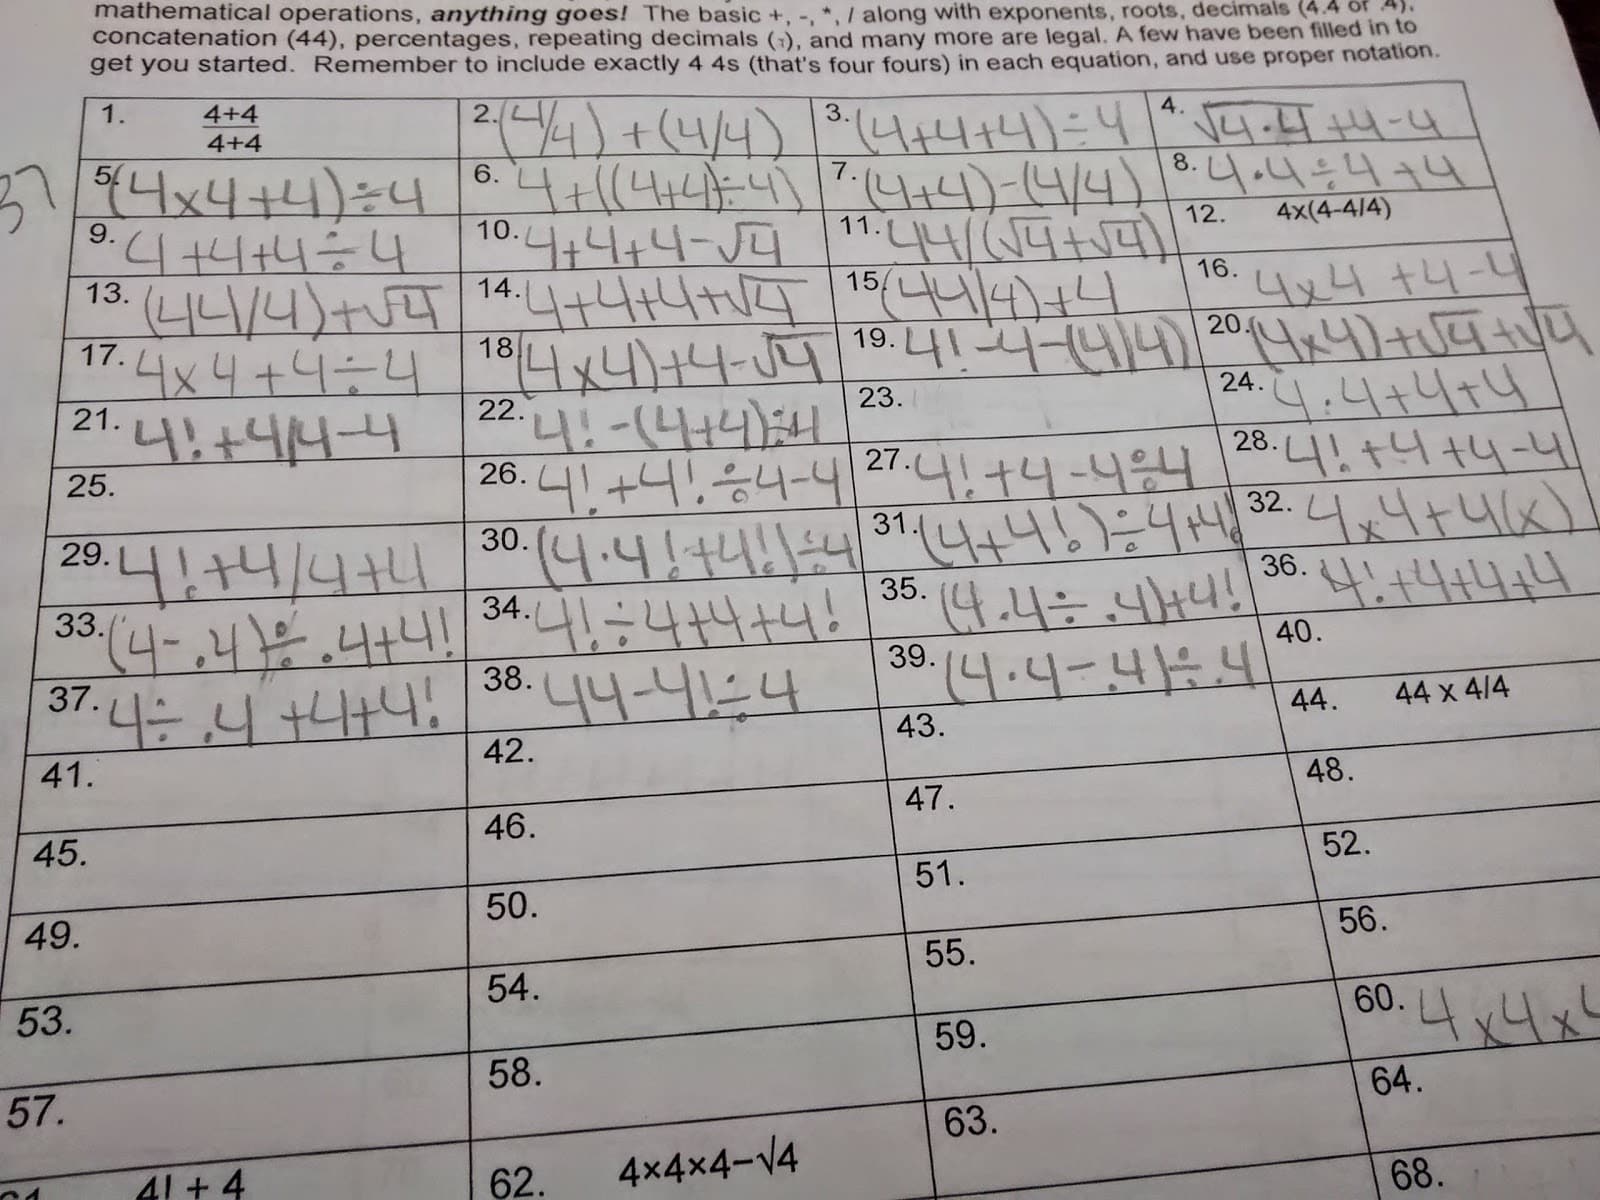 mathematical operations, anything goes! The basic +, -, *, / along with exponents, roots, decimals (4.4 or .4),
concatenation (44), percentages, repeating decimals (), and many more are legal. A few have been filled in to
get you started. Remember to include exactly 4 4s (that's four fours) in each equation, and use proper notation.
37
1. 4+4
4+4
2. (4/4) + (4/4)
3. (4+4+4) ÷ 4
4. √4·4 +4-4
5. (4x4+4)÷4
6. 4+((4+4)÷4)
7. (4+4)-(4/4)
8. 4·4÷4+4
9. 4+4+4÷4
10. 4+4+4-√4
11. 44/(√4+√4)
12. 4x(4-4/4)
13. (44/4)+√4
14. 4+4+4+√4
15. (44/4)+4
16. 4x4 +4-4
17. 4x4+4÷4
18 (4x4)+4-√4
19. 4!-4-(4/4)
20. (4x4)+√4+√4
21. 4!+4/4-4
22. 4!-(4+4)÷4
23.
24. 4·4+4+4
25.
26. 4!+4!÷4-4
27. 4!+4-4÷4
28. 4!+4+4-4
29. 4!+4/4+4
30. (4·4!+4!)÷4
31. (4+4!)÷4+4!
32. 4x4+4(x)
33. (4-.4)÷.4+4!
34. 4!÷4+4+4!
35. (4.4÷.4)+4!
36. 4!+4+4+4
37. 4÷.4+4+4!
38. 44-4!÷4
39. (4·4-.4)÷.4
40.
41.
42.
43.
44. 44 x 4/4
45.
46.
47.
48.
49.
50.
51.
52.
53.
54.
55.
56.
57.
58.
59.
60. 4x4x4
4! + 4
62. 4×4×4−√4
63.
64.
68.